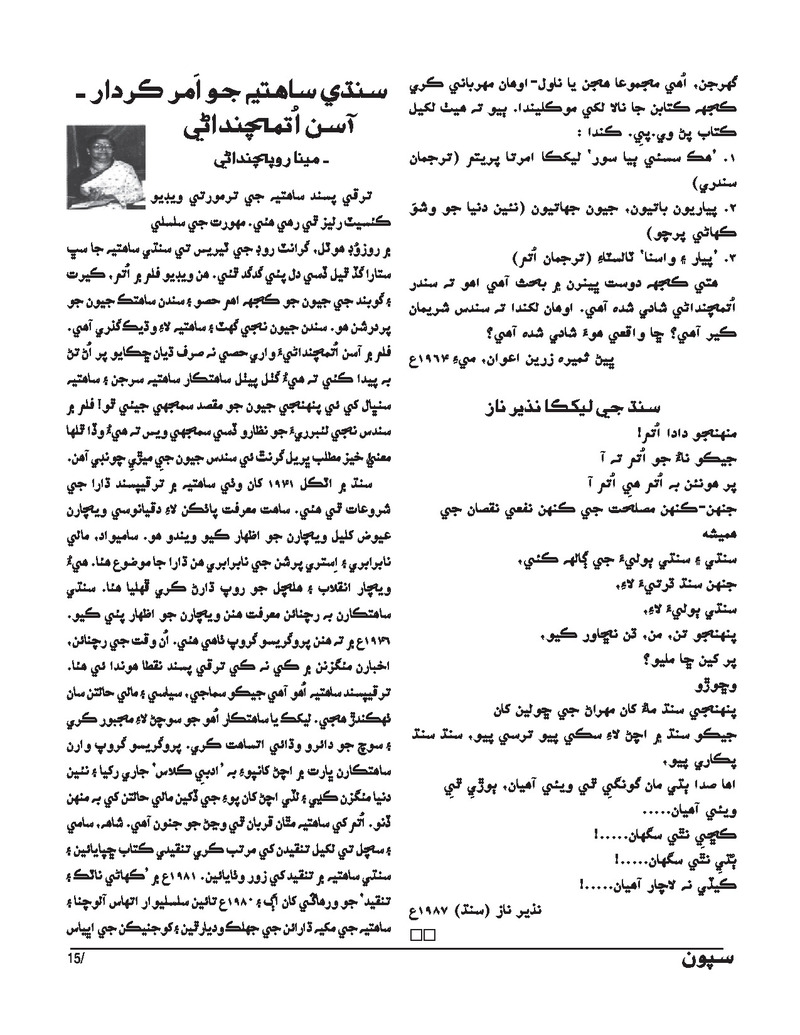 گهرجن، اُهي مجموعا هجن يا ناول-اوهان مهرباني ڪري
ڪجهہ ڪتابن جا نالا لکي موڪليندا. ٻيو تہ هيٺ لکيل
ڪتاب پڻ وي.پي. ڪندا :
١. ’هڪ سسئي ٻيا سور‘ ليکڪا امرتا پريتم (ترجمان
سندري)
٢. پياريون باتيون، جيون جهاتيون (نئين دنيا جو وشوَ
ڪهاڻي پرچو)
٣. ’پيار ۽ واسنا‘ ٽالسٽاءِ (ترجمان اُتم)
هتي ڪجهہ دوست ڀينرن ۾ بحث آهي اهو تہ سندر
اُتمچنداڻي شادي شده آهي. اوهان لکندا تہ سندس شريمان
ڪير آهي؟ ڇا واقعي هوءَ شادي شده آهي؟
ڀيڻ ثميره زرين اعوان، مي‍ءِ ١٩٦۴ع
سنڌ جي ليکڪا نذير ناز
منهنجو دادا اُتم!
جيڪو ناءُ جو اُتم تہ آ
پر هونئن بہ اُتم هي اُتم آ
جنهن-ڪنهن مصلحت جي ڪنهن نفعي نقصان جي
هميشه
سنڌي ۽ سنڌي ٻوليءَ جي ڳالهہ ڪئي،
جنهن سنڌ ڌرتيءَ لاءِ،
سنڌي ٻوليءَ لاءِ،
پنهنجو تن، من، ڌن نڇاور ڪيو،
پر کين ڇا مليو؟
وڇوڙو
پنهنجي سنڌ ماءُ کان مهراڻ جي ڇولين کان
جيڪو سنڌ ۾ اچڻ لاءِ سڪي پيو ترسي پيو، سنڌ سنڌ
پڪاري پيو،
اها صدا ٻڌي مان گونگي ٿي ويئي آهيان، ٻوڙي ٿي
ويئي آهيان.....
ڪڇي نٿي سگهان.....!
ٻڌي نٿي سگهان.....!
ڪيڏي نہ لاچار آهيان.....!
نذير ناز (سنڌ) ١٩٨٧ع
سنڌي ساهتيہ جو اَمر ڪردار ـ
آسن اُتمچنداڻي
ـ مينا روپچنداڻي
ترقي پسند ساهتيہ جي ترمورتي ويڊيو
ڪئسيٽ رليز ٿي رهي هئي. مهورت جي سلسلي
۾ روزوُڊ هوٽل، گرانٽ روڊ جي ٽيريس تي سنڌي ساهتيہ جا سڀ
ستارا گڏ ٿيل ڏسي دل پئي گدگد ٿئي. هن ويڊيو فلم ۾ اُتم، ڪيرت
۽ گوبند جي جيون جو ڪجهہ اهم حصو ۽ سندن ساهتڪ جيون جو
پردرشن هو. سندن جيون نجي گهٽ ۽ ساهتيہ لاءِ وڌيڪ گذري آهي.
فلم ۾ آسن اُتمچنداڻيءَ واري حصي نہ صرف ڌيان ڇڪايو پر اُڻ تڻ
بہ پيدا ڪئي تہ هيءُ گٺل پيٺل ساهتڪار ساهتيہ سرجن ۽ ساهتيہ
سنڀال کي ئي پنهنجي جيون جو مقصد سمجهي جيئي ٿو! فلم ۾
سندس نجي لئبرريءَ جو نظارو ڏسي سمجهي ويس تہ هيءُ وڏا ٿلها
معنيٰ خيز مطلب ڀريل گرنٿ ئي سندس جيون جي ميڙي چونڊي آهن.
سنڌ ۾ اٽڪل ١٩۴١ کان وٺي ساهتيہ ۾ ترقيپسند ڌارا جي
شروعات ٿي هئي. ساهت معرفت پاٺڪن لاءِ دقيانوسي ويچارن
عيوض کليل ويچارن جو اظهار ڪيو ويندو هو. ساميواد، مالي
نابرابري ۽ اِستري پرشن جي نابرابري هن ڌارا جا موضوع هئا. هيءُ
ويچار انقلاب ۽ هلچل جو روپ ڌارڻ ڪري ڦهليا هئا. سنڌي
ساهتڪارن بہ رچنائن معرفت هنن ويچارن جو اظهار پئي ڪيو.
١٩۴٦ع ۾ تہ هنن پروگريسو گروپ ٺاهي هئي. اُن وقت جي رچنائن،
اخبارن مئگزنن ۾ ڪي نہ ڪي ترقي پسند نقطا هوندا ئي هئا.
ترقيپسند ساهتيہ اُهو آهي جيڪو سماجي، سياسي ۽ مالي حالتن سان
ٺهڪندڙ هجي. ليکڪ يا ساهتڪار اُهو جو سوچڻ لاءِ مجبور ڪري
۽ سوچ جو دائرو وڌائي اتساهت ڪري. پروگريسو گروپ وارن
ساهتڪارن ڀارت ۾ اچڻ کانپوءِ بہ ’ادبي ڪلاس‘ جاري رکيا ۽ نئين
دنيا مئگزن ڪڍي ۽ لڏي اچڻ کان پوءِ جي ڏکين مالي حالتن کي بہ منهن
ڏنو. اُتم کي ساهتيہ مٿان قربان ٿي وڃڻ جو جنون آهي. شاهہ، سامي
۽ سچل تي لکيل تنقيدن کي مرتب ڪري تنقيدي ڪتاب ڇپايائين ۽
سنڌي ساهتيہ ۾ تنقيد کي زور وٺايائين. ١٩٨١ع ۾ ’ڪهاڻي ناٽڪ ۽
تنقيد‘ جو ورهاڱي کان اڳ ۽ ١٩٨٠ع تائين سلسليوار اتهاس آلوچنا ۽
ساهتيہ جي مکيہ ڌارائن جي جهلڪ وديارٿين ۽ کوجنيڪن جي اڀياس
15/
سپون